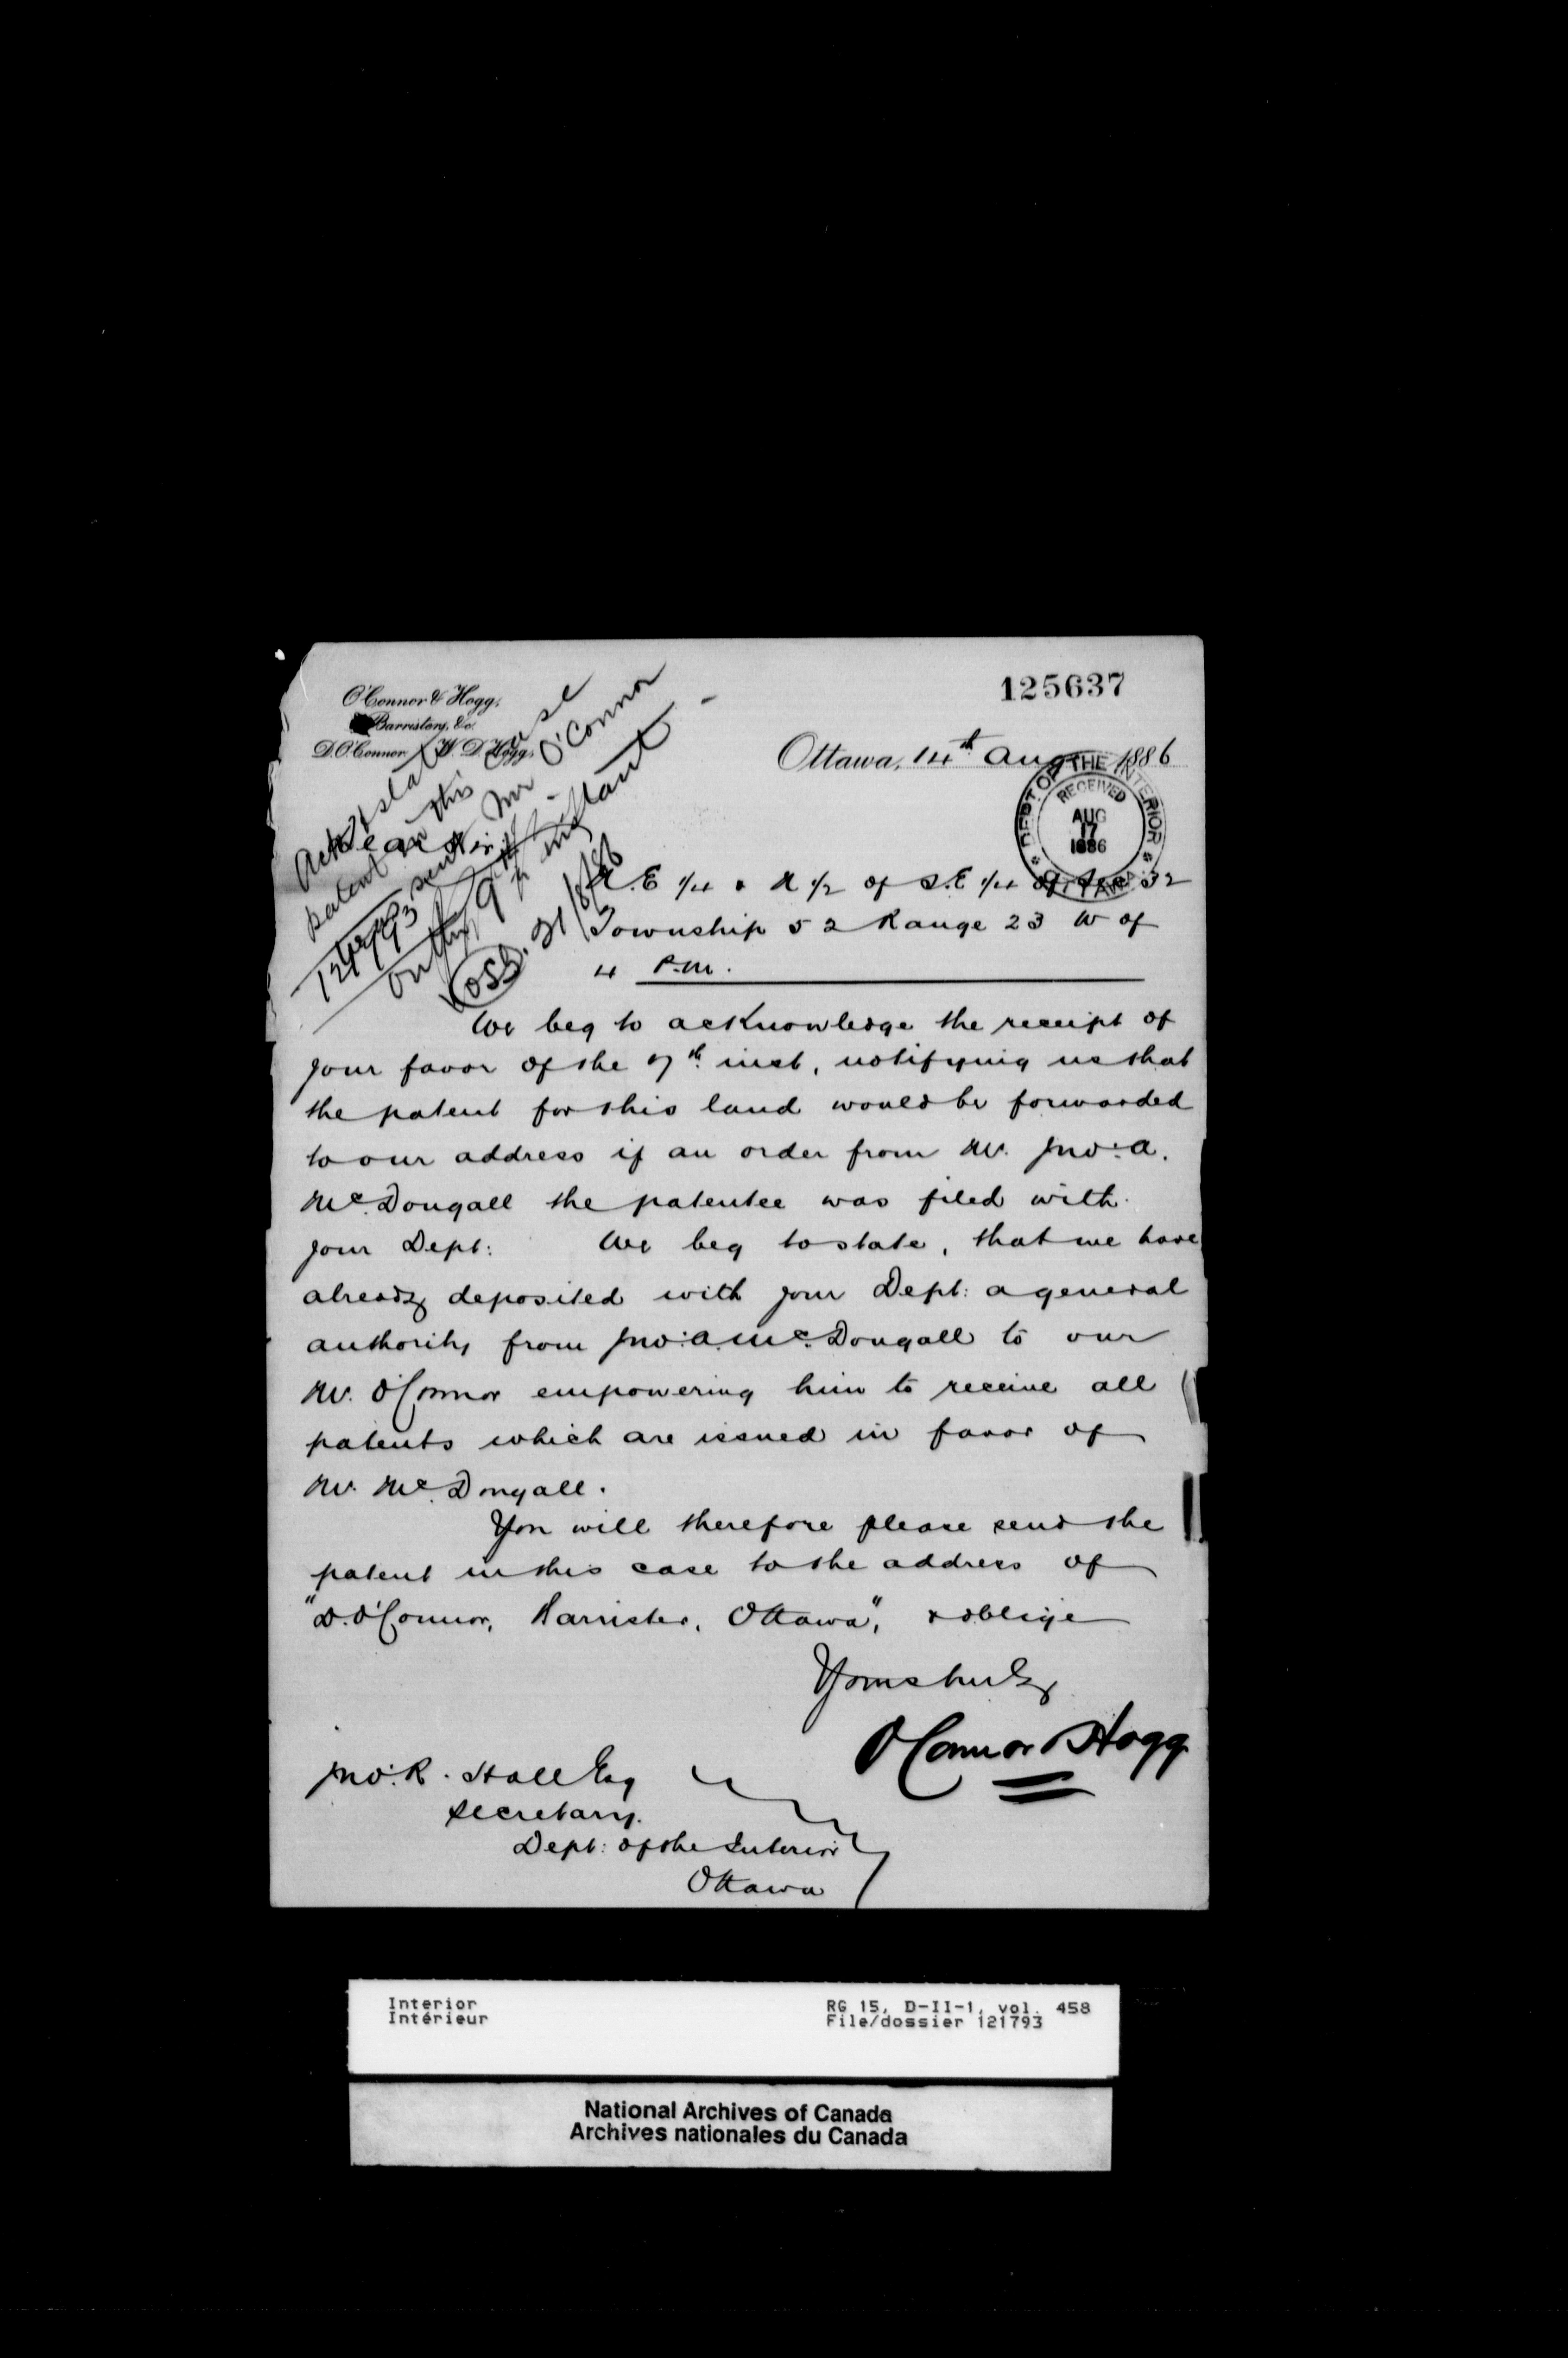 125637
O'Connor & Hogg,
Barristers, &c.
D. O'Connor. W. D. Hogg.
Ottawa, 14th Aug 1886
DEPT OF THE INTERIOR
RECEIVED
AUG
17
1886
OTTAWA
Ack & state
patent in this case
sent Mr O'Connor
121793
on the 9th instant -
21/8/86
Dear Sir,
N.E 1/4 & N 1/2 of S.E 1/4 of Sec 32
Township 52 Range 23 W of
4 P.M.
We beg to acknowledge the receipt of
your favor of the 7th inst, notifying us that
the patent for this land would be forwarded
to our address if an order from Mr. Jno: A.
McDougall the patentee was filed with
your Dept: We beg to state, that we have
already deposited with your Dept: a general
authority from Jno: A. McDougall to our
Mr. O'Connor empowering him to receive all
patents which are issued in favor of
Mr. McDougall.
You will therefore please send the
patent in this case to the address of
"D. O'Connor, Barrister, Ottawa", & oblige
Yours truly
O'Connor & Hogg
Jno: R. Hall Esq
Secretary.
Dept: of the Interior
Ottawa
Interior
Intérieur
RG 15, D-II-1, vol. 458
File/dossier 121793
National Archives of Canada
Archives nationales du Canada